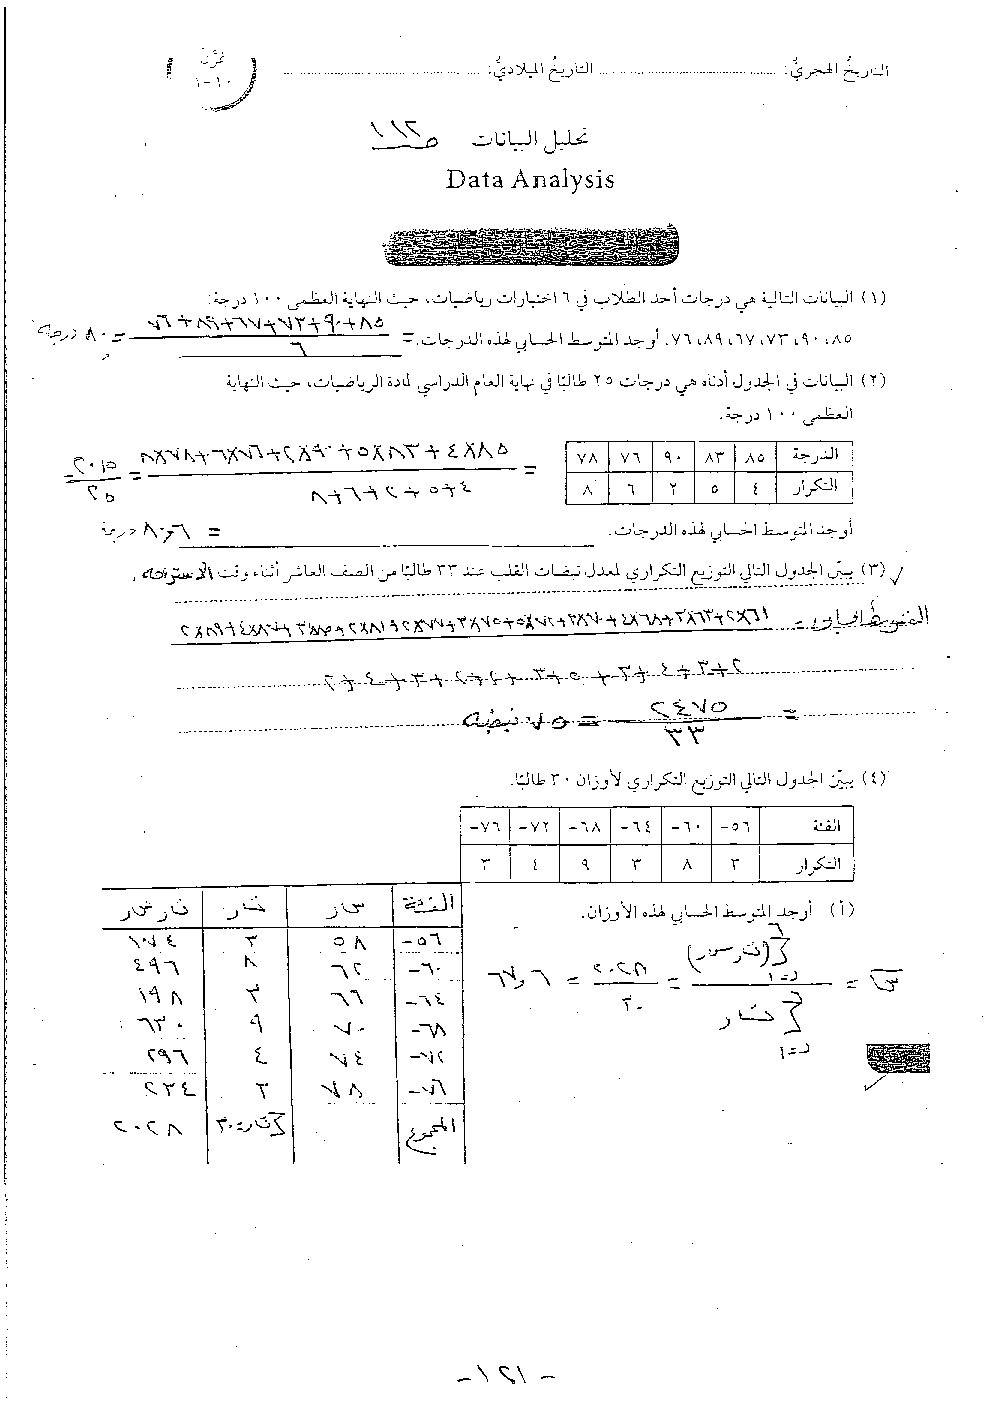 التاريخُ الهجريُّ: ........ التاريخُ الميلاديُّ: ........
تمرَّن
١٠-١
تحليل البيانات ص ١١٢
Data Analysis
(١) البيانات التالية هي درجات أحد الطلاب في ٦ اختبارات رياضيات، حيث النهاية العظمى ١٠٠ درجة:
٨٥، ٩٠، ٧٣، ٦٧، ٨٩، ٧٦. أوجد المتوسط الحسابي لهذه الدرجات. = ٧٦+٨٩+٦٧+٧٣+٩٠+٨٥ / ٦ = ٨٠ درجة
(٢) البيانات في الجدول أدناه هي درجات ٢٥ طالبًا في نهاية العام الدراسي لمادة الرياضيات، حيث النهاية
العظمى ١٠٠ درجة.
الدرجة ٨٥ ٨٣ ٩٠ ٧٦ ٧٨
التكرار ٤ ٥ ٢ ٦ ٨
= ٨×٧٨+٦×٧٦+٢×٩٠+٥×٨٣+٤×٨٥ / ٨+٦+٢+٥+٤ = ٢٠١٥ / ٢٥
أوجد المتوسط الحسابي لهذه الدرجات. = ٨٠,٦ درجة
(٣) يبيّن الجدول التالي التوزيع التكراري لمعدل نبضات القلب عند ٣٣ طالبًا من الصف العاشر أثناء وقت الاستراحة.
٢+٣+٤+٣+٥+٣+٢+٢+٣+٤+٢
= ٢٤٧٥ / ٣٣ = ٧٥ نبضة
(٤) يبيّن الجدول التالي التوزيع التكراري لأوزان ٣٠ طالبًا.
الفئة ٥٦- ٦٠- ٦٤- ٦٨- ٧٢- ٧٦-
التكرار ٣ ٨ ٣ ٩ ٤ ٣
(أ) أوجد المتوسط الحسابي لهذه الأوزان.
= ٢٠٢٨ / ٣٠ = ٦٧,٦
الفئة سر تر تر سر
٥٦- ٥٨ ٣ ١٧٤
٦٠- ٦٢ ٨ ٤٩٦
٦٤- ٦٦ ٣ ١٩٨
٦٨- ٧٠ ٩ ٦٣٠
٧٢- ٧٤ ٤ ٢٩٦
٧٦- ٧٨ ٣ ٢٣٤
المجموع ٣٠ ٢٠٢٨
- ١٢١ -